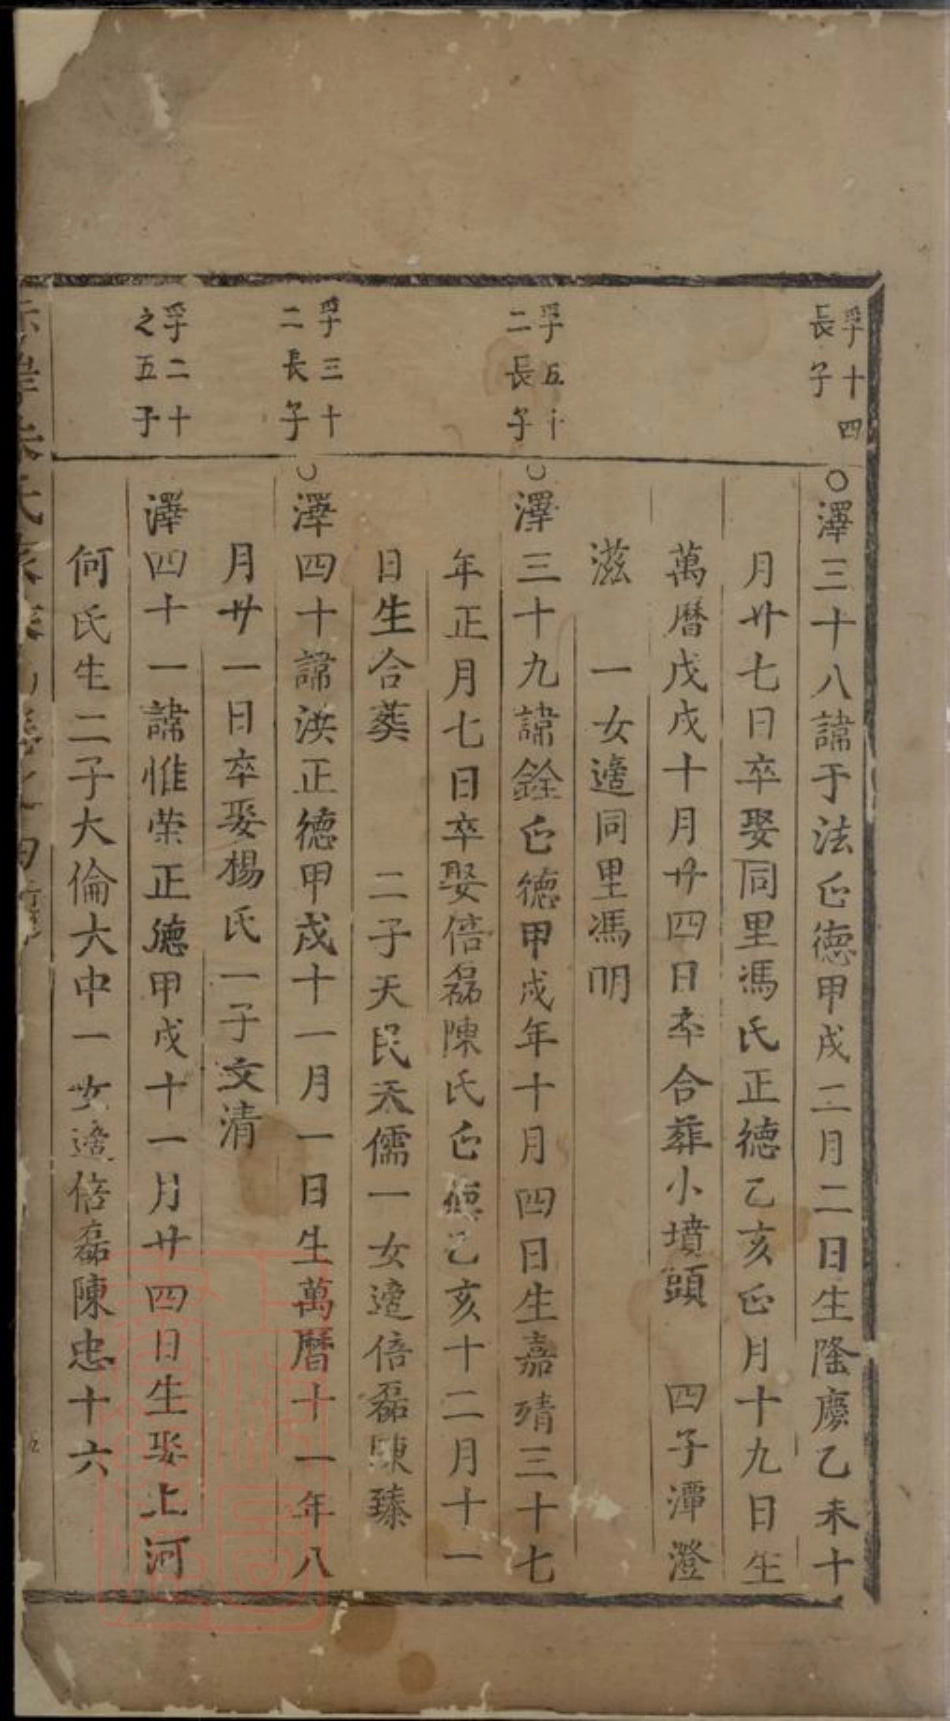 孚十四
長子
○澤三十八諱于法正德甲戌二月二日生隆慶乙未十
月廿七日卒娶同里馮氏正德乙亥正月十九日生
萬曆戊戌十月廿四日卒合葬小墳頭　四子潭澄
滋　一女適同里馮明
孚五十
二長子
○澤三十九諱銓正德甲戌年十月四日生嘉靖三十七
年正月七日卒娶倍磊陳氏正德乙亥十二月十一
日生合葬　二子天民天儒一女適倍磊陳臻
孚三十
二長子
○澤四十諱洪正德甲戌十一月一日生萬曆十一年八
月廿一日卒娶楊氏一子文清
孚二十
之五子
澤四十一諱惟榮正德甲戌十一月廿四日生娶上河
何氏生二子大倫大中一女適倍磊陳忠十六